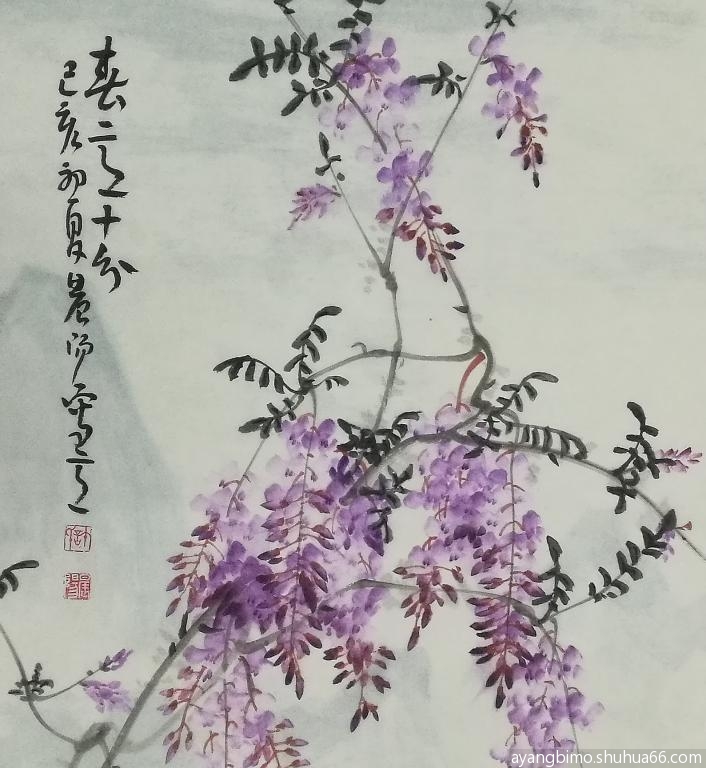 春意十分
己亥初夏晨阳
ayangbimo.shuhua66.com